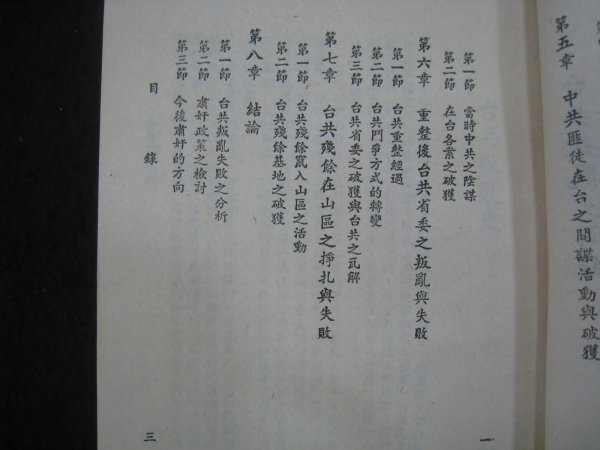 第五章　中共匪徒在台之間諜活動與破獲
第一節　當時中共之陰謀
第二節　在台各案之破獲
第六章　重整後台共省委之叛亂與失敗
第一節　台共重整經過
第二節　台共鬥爭方式的轉變
第三節　台共省委之破獲與台共之瓦解
第七章　台共殘餘在山區之掙扎與失敗
第一節　台共殘餘竄入山區之活動
第二節　台共殘餘基地之破獲
第八章　結論
第一節　台共叛亂失敗之分析
第二節　肅奸政策之檢討
第三節　今後肅奸的方向
目　錄
三
一